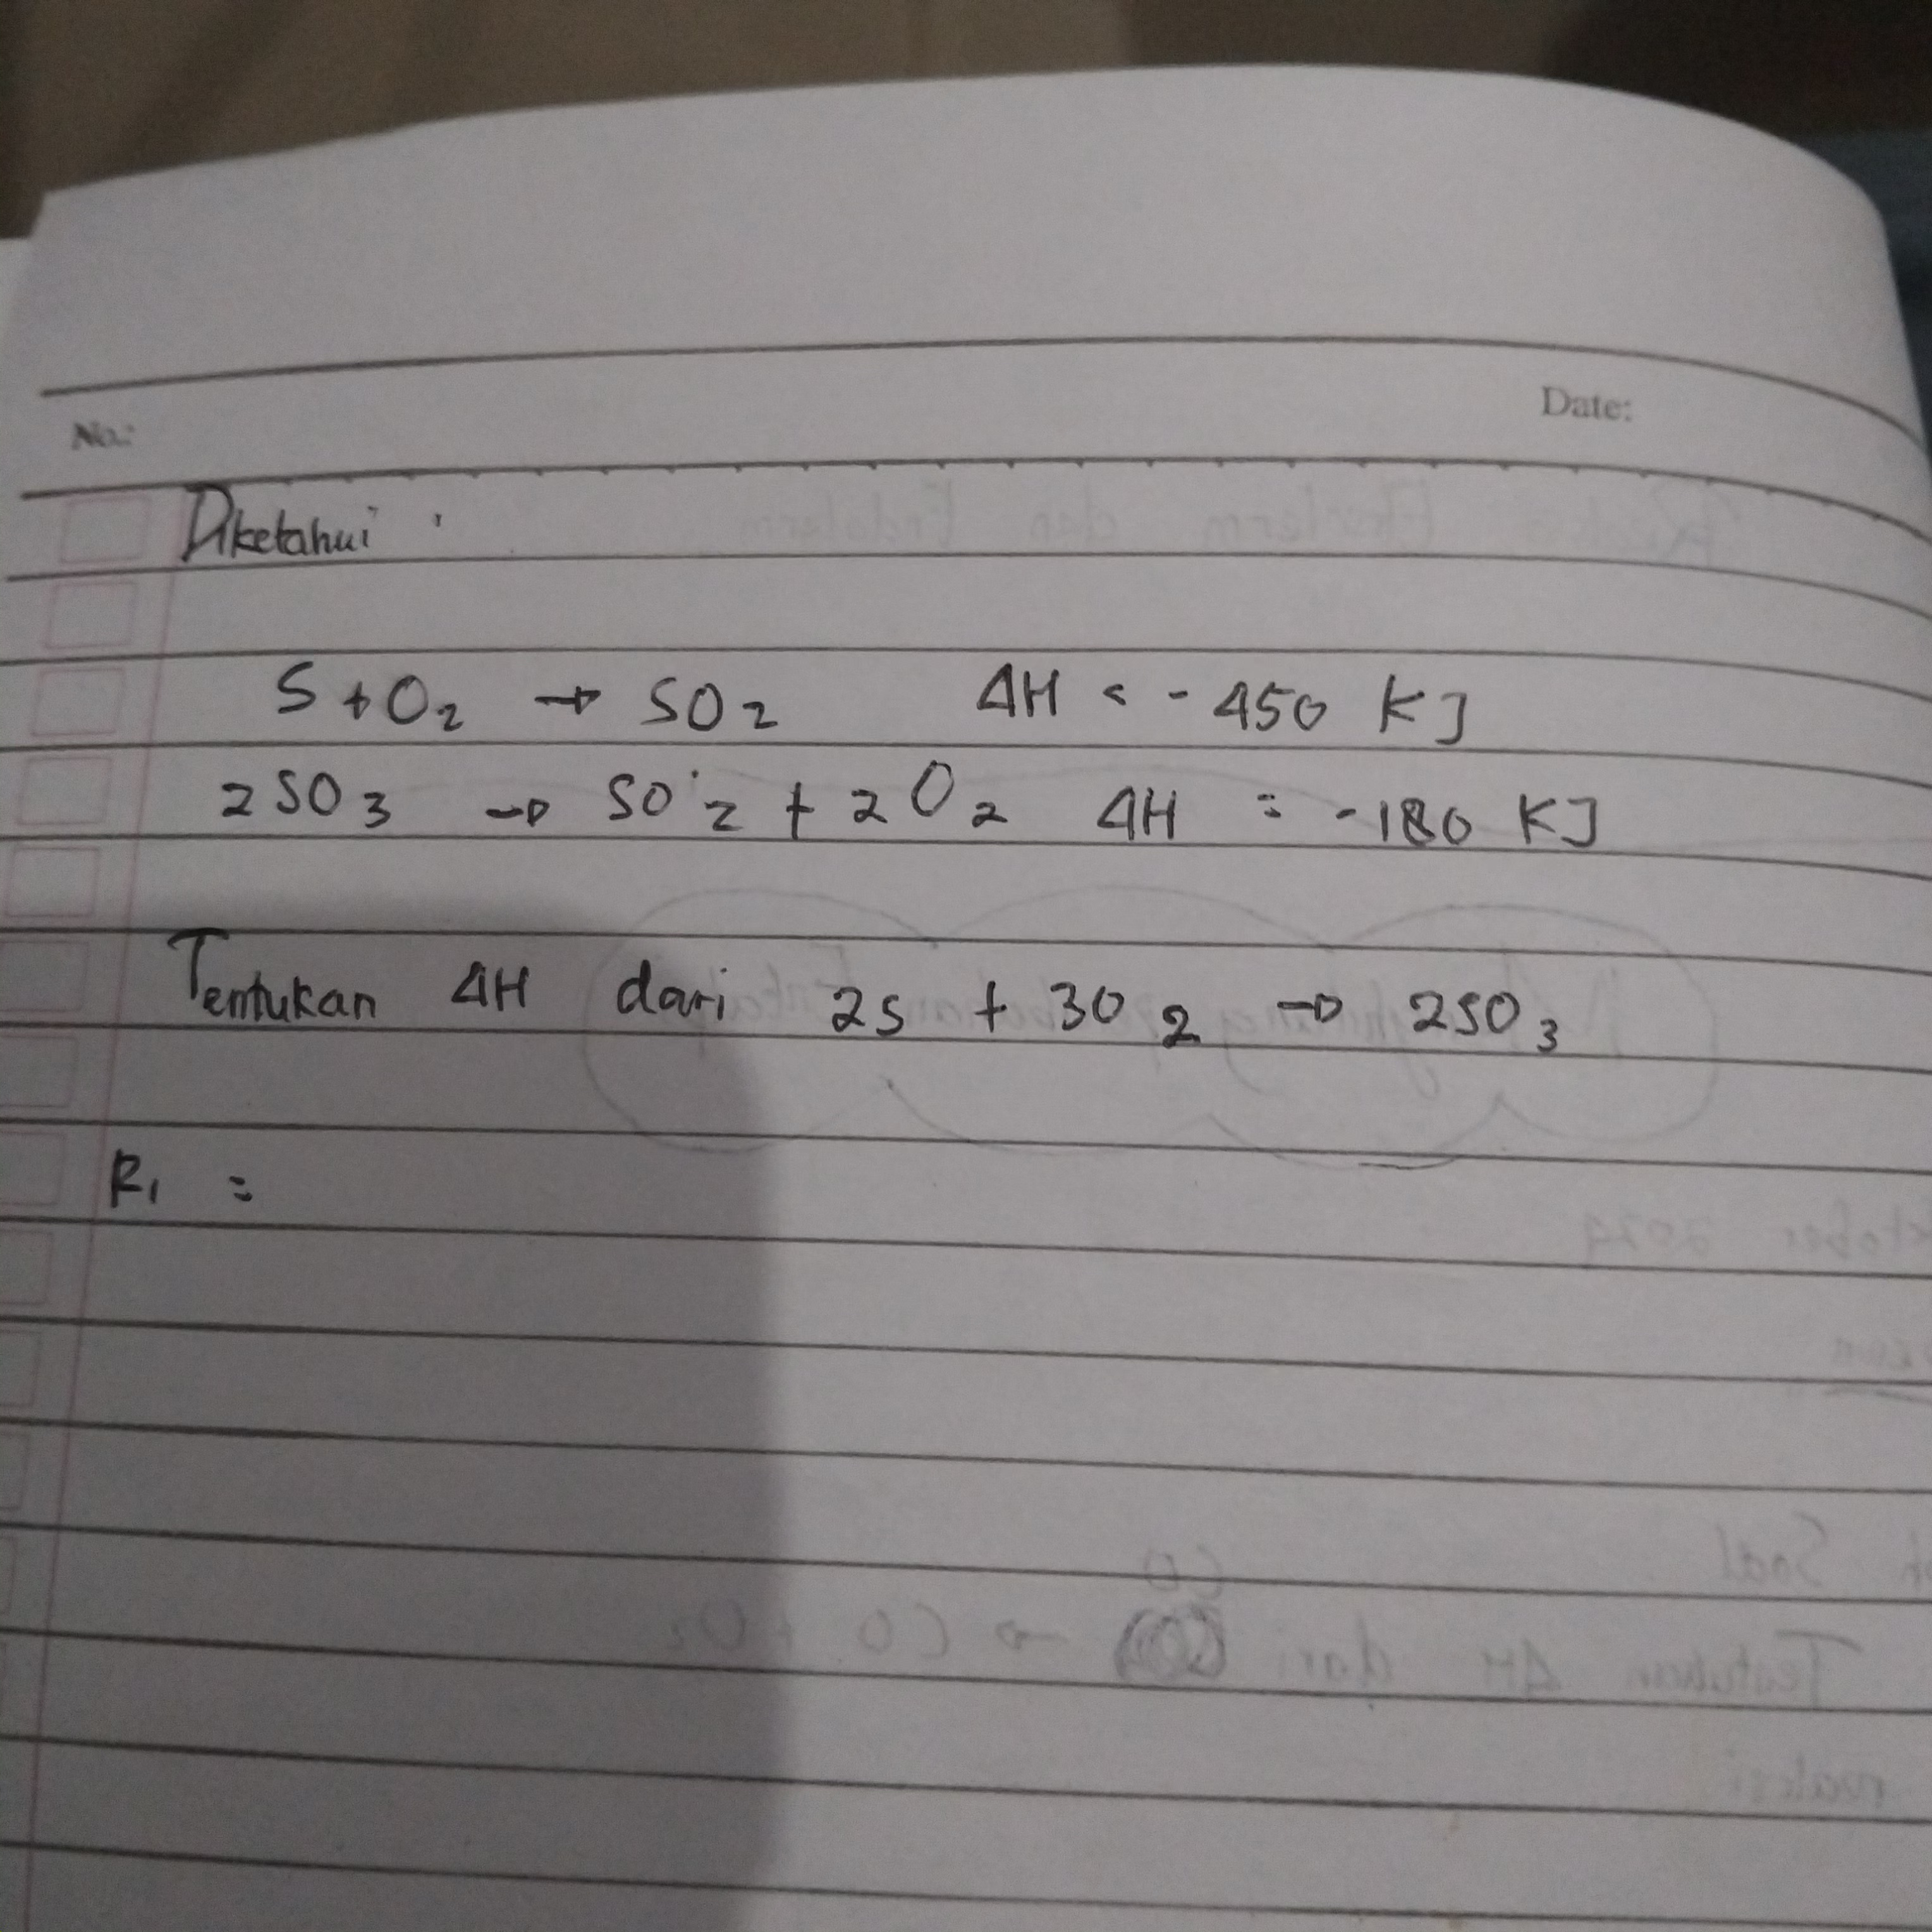 No.:
Date:
Diketahui :
S + O₂ → SO₂ ΔH = -450 KJ
2SO₃ → SO₂ + 2O₂ ΔH = -180 KJ
Tentukan ΔH dari 2S + 3O₂ → 2SO₃
R₁ =